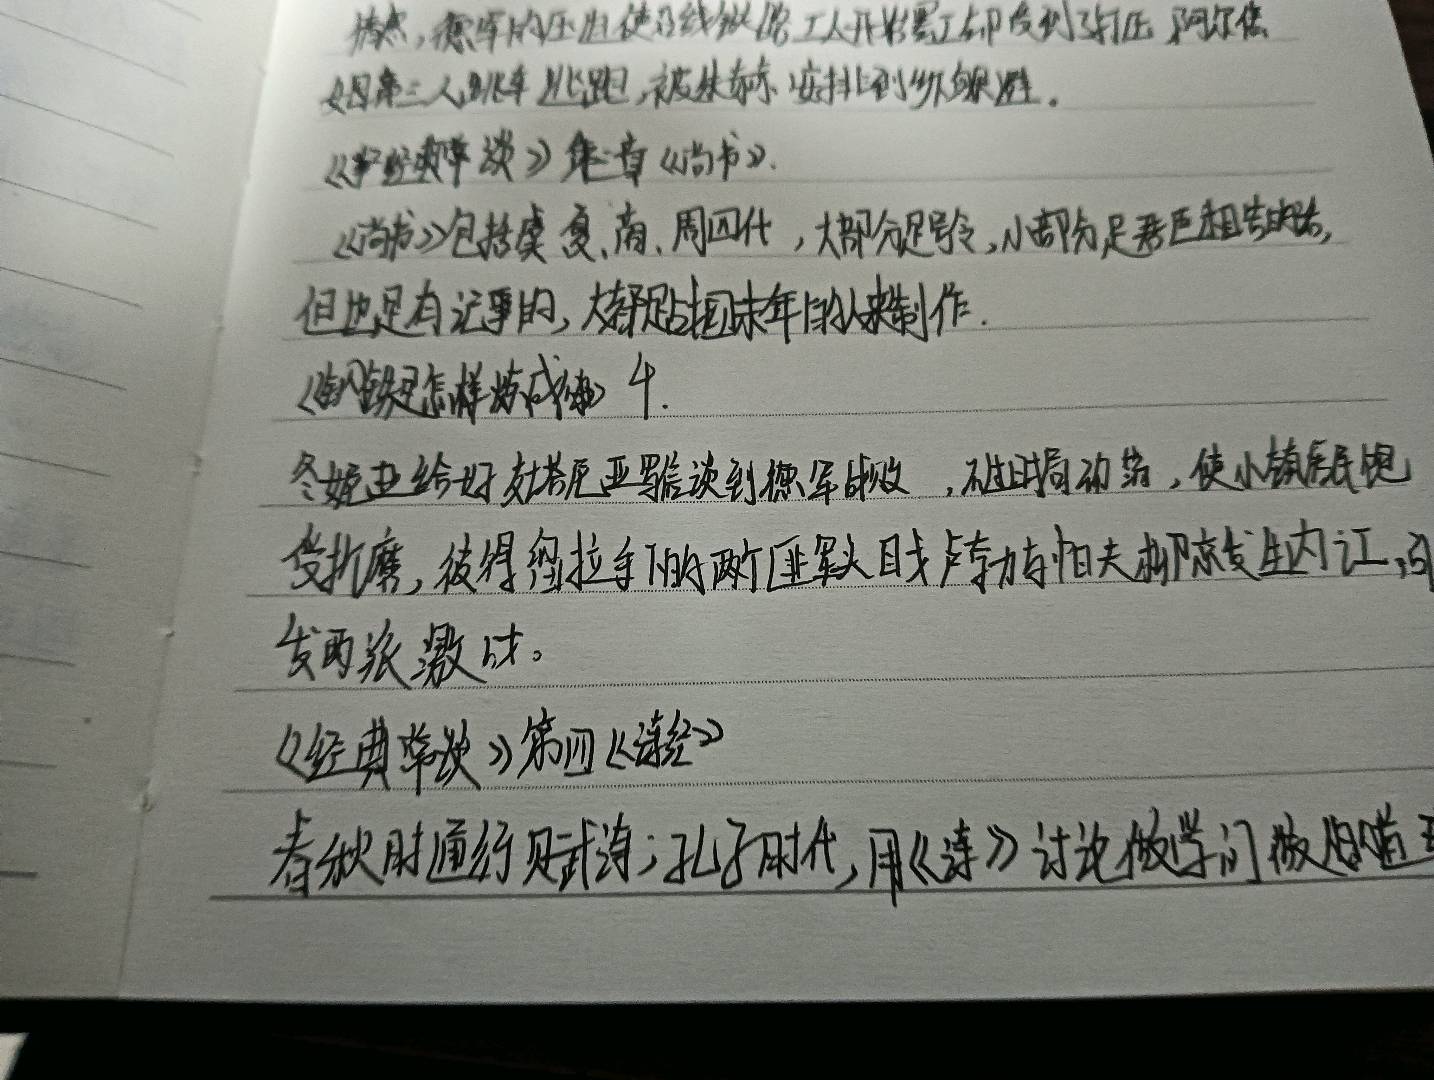 德军的压迫使沿线铁路工人开始罢工却受到了打压,阿尔焦
姆第三人跳车逃跑,被朱赫来安排到乡躲避。
《经典常谈》第三章《尚书》.
《尚书》包括虞夏、商、周四代,大部分是号令,小部分是君臣相告的话,
但也是有记事的,大都是战国末年的人来制作.
《钢铁是怎样炼成的》4.
冬妮亚给好友塔尼亚写信谈到德军战败,不过时局动荡,使小镇居民饱
受折磨,彼得留拉手下的两个匪军头目戈卢勃与帕夫柳克发生内讧,
发两派激战。
《经典常谈》第四《诗经》
春秋时通行赋诗;孔子时代,用《诗》讨论做学问做人的道